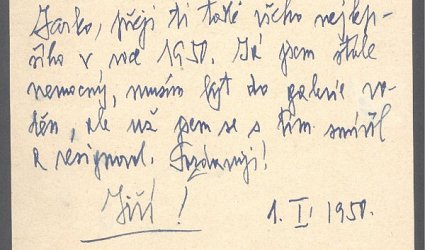 Jarko, přeji ti také všeho nejlep-
šího v roce 1950. Já jsem stále
nemocný, musím být do galerie vo-
děn, ale už jsem se s tím smířil
a resignoval. Pozdravuji!
Jiří!
1. I. 1950.